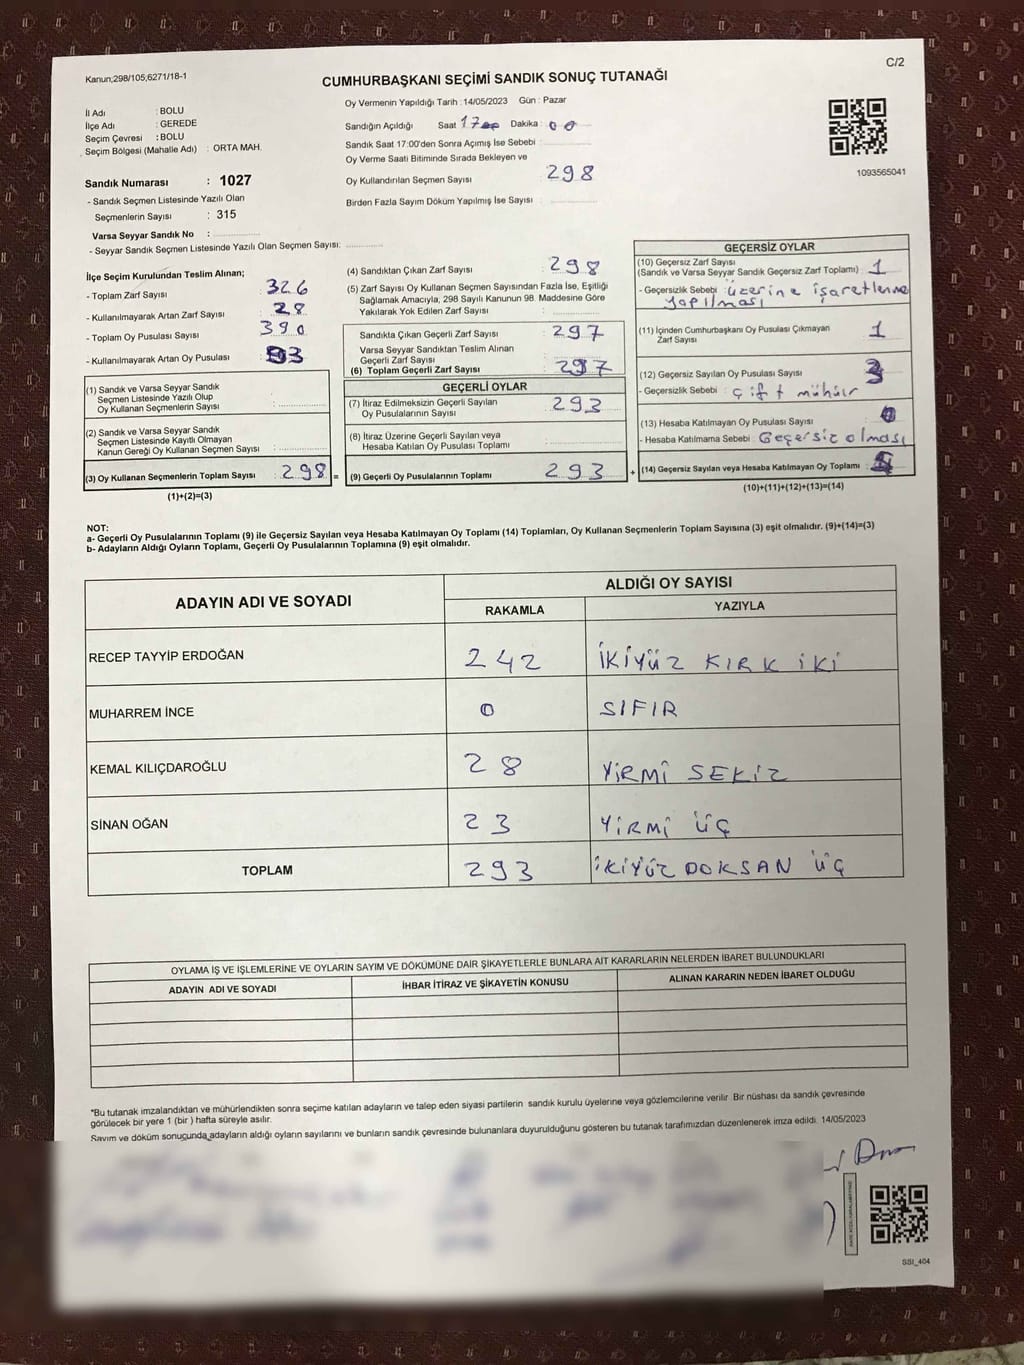 Kanun;298/105,6271/18-1
C/2
CUMHURBAŞKANI SEÇİMİ SANDIK SONUÇ TUTANAĞI
İl Adı : BOLU
İlçe Adı : GEREDE
Seçim Çevresi : BOLU
Seçim Bölgesi (Mahalle Adı) : ORTA MAH.
Sandık Numarası : 1027
- Sandık Seçmen Listesinde Yazılı Olan
Seçmenlerin Sayısı : 315
Varsa Seyyar Sandık No :
- Seyyar Sandık Seçmen Listesinde Yazılı Olan Seçmen Sayısı:
Oy Vermenin Yapıldığı Tarih : 14/05/2023 Gün : Pazar
Sandığın Açıldığı Saat 17 Dakika : 00
Sandık Saat 17:00'den Sonra Açımış İse Sebebi :
Oy Verme Saati Bitiminde Sırada Bekleyen ve
Oy Kullandırılan Seçmen Sayısı 298
Birden Fazla Sayım Döküm Yapılmış İse Sayısı :
1093565041
İlçe Seçim Kurulundan Teslim Alınan;
- Toplam Zarf Sayısı : 326
- Kullanılmayarak Artan Zarf Sayısı : 28
- Toplam Oy Pusulası Sayısı : 390
- Kullanılmayarak Artan Oy Pusulası : 93
(1) Sandık ve Varsa Seyyar Sandık
Seçmen Listesinde Yazılı Olup
Oy Kullanan Seçmenlerin Sayısı :
(2) Sandık ve Varsa Seyyar Sandık
Seçmen Listesinde Kayıtlı Olmayan
Kanun Gereği Oy Kullanan Seçmen Sayısı :
(3) Oy Kullanan Seçmenlerin Toplam Sayısı : 298 =
(1)+(2)=(3)
(4) Sandıktan Çıkan Zarf Sayısı : 298
(5) Zarf Sayısı Oy Kullanan Seçmen Sayısından Fazla İse, Eşitliği
Sağlamak Amacıyla, 298 Sayılı Kanunun 98. Maddesine Göre
Yakılarak Yok Edilen Zarf Sayısı :
Sandıkta Çıkan Geçerli Zarf Sayısı : 297
Varsa Seyyar Sandıktan Teslim Alınan
Geçerli Zarf Sayısı :
(6) Toplam Geçerli Zarf Sayısı : 297
GEÇERLİ OYLAR
(7) İtiraz Edilmeksizin Geçerli Sayılan
Oy Pusulalarının Sayısı : 293
(8) İtiraz Üzerine Geçerli Sayılan veya
Hesaba Katılan Oy Pusulası Toplamı :
(9) Geçerli Oy Pusulalarının Toplamı : 293 +
GEÇERSİZ OYLAR
(10) Geçersiz Zarf Sayısı
(Sandık ve Varsa Seyyar Sandık Geçersiz Zarf Toplamı) : 1
- Geçersizlik Sebebi : üzerine işaretleme
yapılması
(11) İçinden Cumhurbaşkanı Oy Pusulası Çıkmayan
Zarf Sayısı : 1
(12) Geçersiz Sayılan Oy Pusulası Sayısı : 3
- Geçersizlik Sebebi : çift mühür
(13) Hesaba Katılmayan Oy Pusulası Sayısı : 0
- Hesaba Katılmama Sebebi : Geçersiz olması
(14) Geçersiz Sayılan veya Hesaba Katılmayan Oy Toplamı : 5
(10)+(11)+(12)+(13)=(14)
NOT:
a- Geçerli Oy Pusulalarının Toplamı (9) ile Geçersiz Sayılan veya Hesaba Katılmayan Oy Toplamı (14) Toplamları, Oy Kullanan Seçmenlerin Toplam Sayısına (3) eşit olmalıdır. (9)+(14)=(3)
b- Adayların Aldığı Oyların Toplamı, Geçerli Oy Pusulalarının Toplamına (9) eşit olmalıdır.
ADAYIN ADI VE SOYADI
ALDIĞI OY SAYISI
RAKAMLA YAZIYLA
RECEP TAYYİP ERDOĞAN 242 İKİYÜZ KIRK İKİ
MUHARREM İNCE 0 SIFIR
KEMAL KILIÇDAROĞLU 28 YİRMİ SEKİZ
SİNAN OĞAN 23 YİRMİ ÜÇ
TOPLAM 293 İKİYÜZ DOKSAN ÜÇ
OYLAMA İŞ VE İŞLEMLERİNE VE OYLARIN SAYIM VE DÖKÜMÜNE DAİR ŞİKAYETLERLE BUNLARA AİT KARARLARIN NELERDEN İBARET BULUNDUKLARI
ADAYIN ADI VE SOYADI İHBAR İTİRAZ VE ŞİKAYETİN KONUSU ALINAN KARARIN NEDEN İBARET OLDUĞU
*Bu tutanak imzalandıktan ve mühürlendikten sonra seçime katılan adayların ve talep eden siyasi partilerin sandık kurulu üyelerine veya gözlemcilerine verilir. Bir nüshası da sandık çevresinde
görülecek bir yere 1 (bir ) hafta süreyle asılır.
Sayım ve döküm sonucunda adayların aldığı oyların sayılarını ve bunların sandık çevresinde bulunanlara duyurulduğunu gösteren bu tutanak tarafımızdan düzenlenerek imza edildi. 14/05/2023
SSI_404